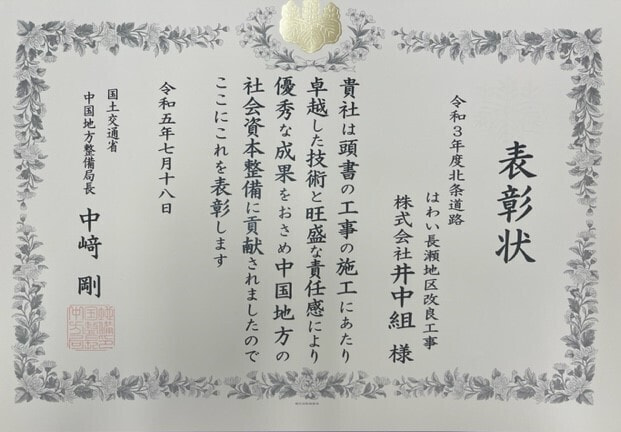 表彰状
令和３年度北条道路
はわい長瀬地区改良工事
株式会社井中組 様
貴社は頭書の工事の施工にあたり
卓越した技術と旺盛な責任感により
優秀な成果をおさめ中国地方の
社会資本整備に貢献されましたので
ここにこれを表彰します
令和五年七月十八日
国土交通省
中国地方整備局長 中﨑 剛